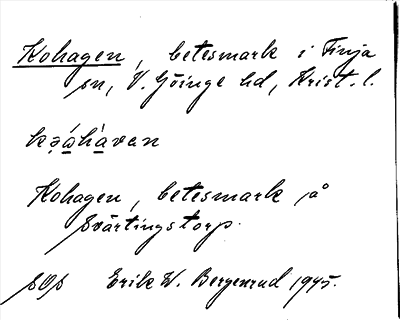 Kohagen, betesmark i Finja
sn, V. Göinge hd, Krist. l.
Kohagen, betesmark på
Svärtingstorp.
SOS Erik W. Bergenrud 1945.